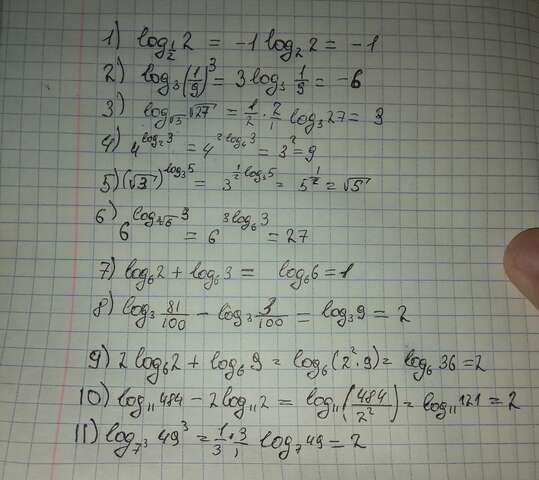 1) log_{1/2} 2 = -1 log_2 2 = -1
2) log_3 (1/9)^3 = 3 log_3 1/9 = -6
3) log_{√3} √27 = 1/2 · 2/1 log_3 27 = 3
4) 4^{log_2 3} = 4^{2 log_4 3} = 3^2 = 9
5) (√3)^{log_3 5} = 3^{1/2 log_3 5} = 5^{1/2} = √5
6) 6^{log_{∛6} 3} = 6^{3 log_6 3} = 27
7) log_6 2 + log_6 3 = log_6 6 = 1
8) log_3 81/100 - log_3 9/100 = log_3 9 = 2
9) 2 log_6 2 + log_6 9 = log_6 (2^2 · 9) = log_6 36 = 2
10) log_11 484 - 2 log_11 2 = log_11 (484/2^2) = log_11 121 = 2
11) log_{7^3} 49^3 = 1/3 · 3/1 log_7 49 = 2